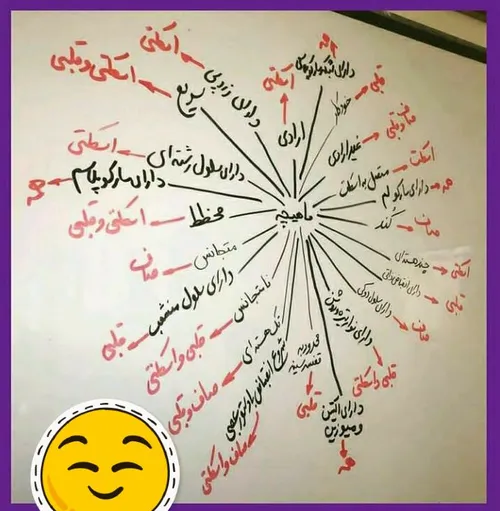 ماهیچه
ارادی
اسکلتی
همه
خودکار
قلبی
غیرارادی
صاف و قلبی
متصل به اسکلت
اسکلتی
دارای سارکولم
همه
کُند
صاف
چند هسته‌ای
اسکلتی
قلبی
دارای سلول دوکی
صاف
دارای نوار تیره و روشن
قلبی و اسکلتی
دارای اکتین
و میوزین
همه
محدود به
قفسه سینه
قلبی
شروع انقباض با دستور عصبی
صاف و اسکلتی
تک هسته‌ای
صاف و قلبی
نامتجانس
قلبی و اسکلتی
دارای سلول منشعب
قلبی
متجانس
صاف
مخطط
اسکلتی و قلبی
دارای سارکوپلاسم
همه
دارای سلول رشته‌ای
اسکلتی
سریع
اسکلتی و قلبی
دارای زردپی
اسکلتی